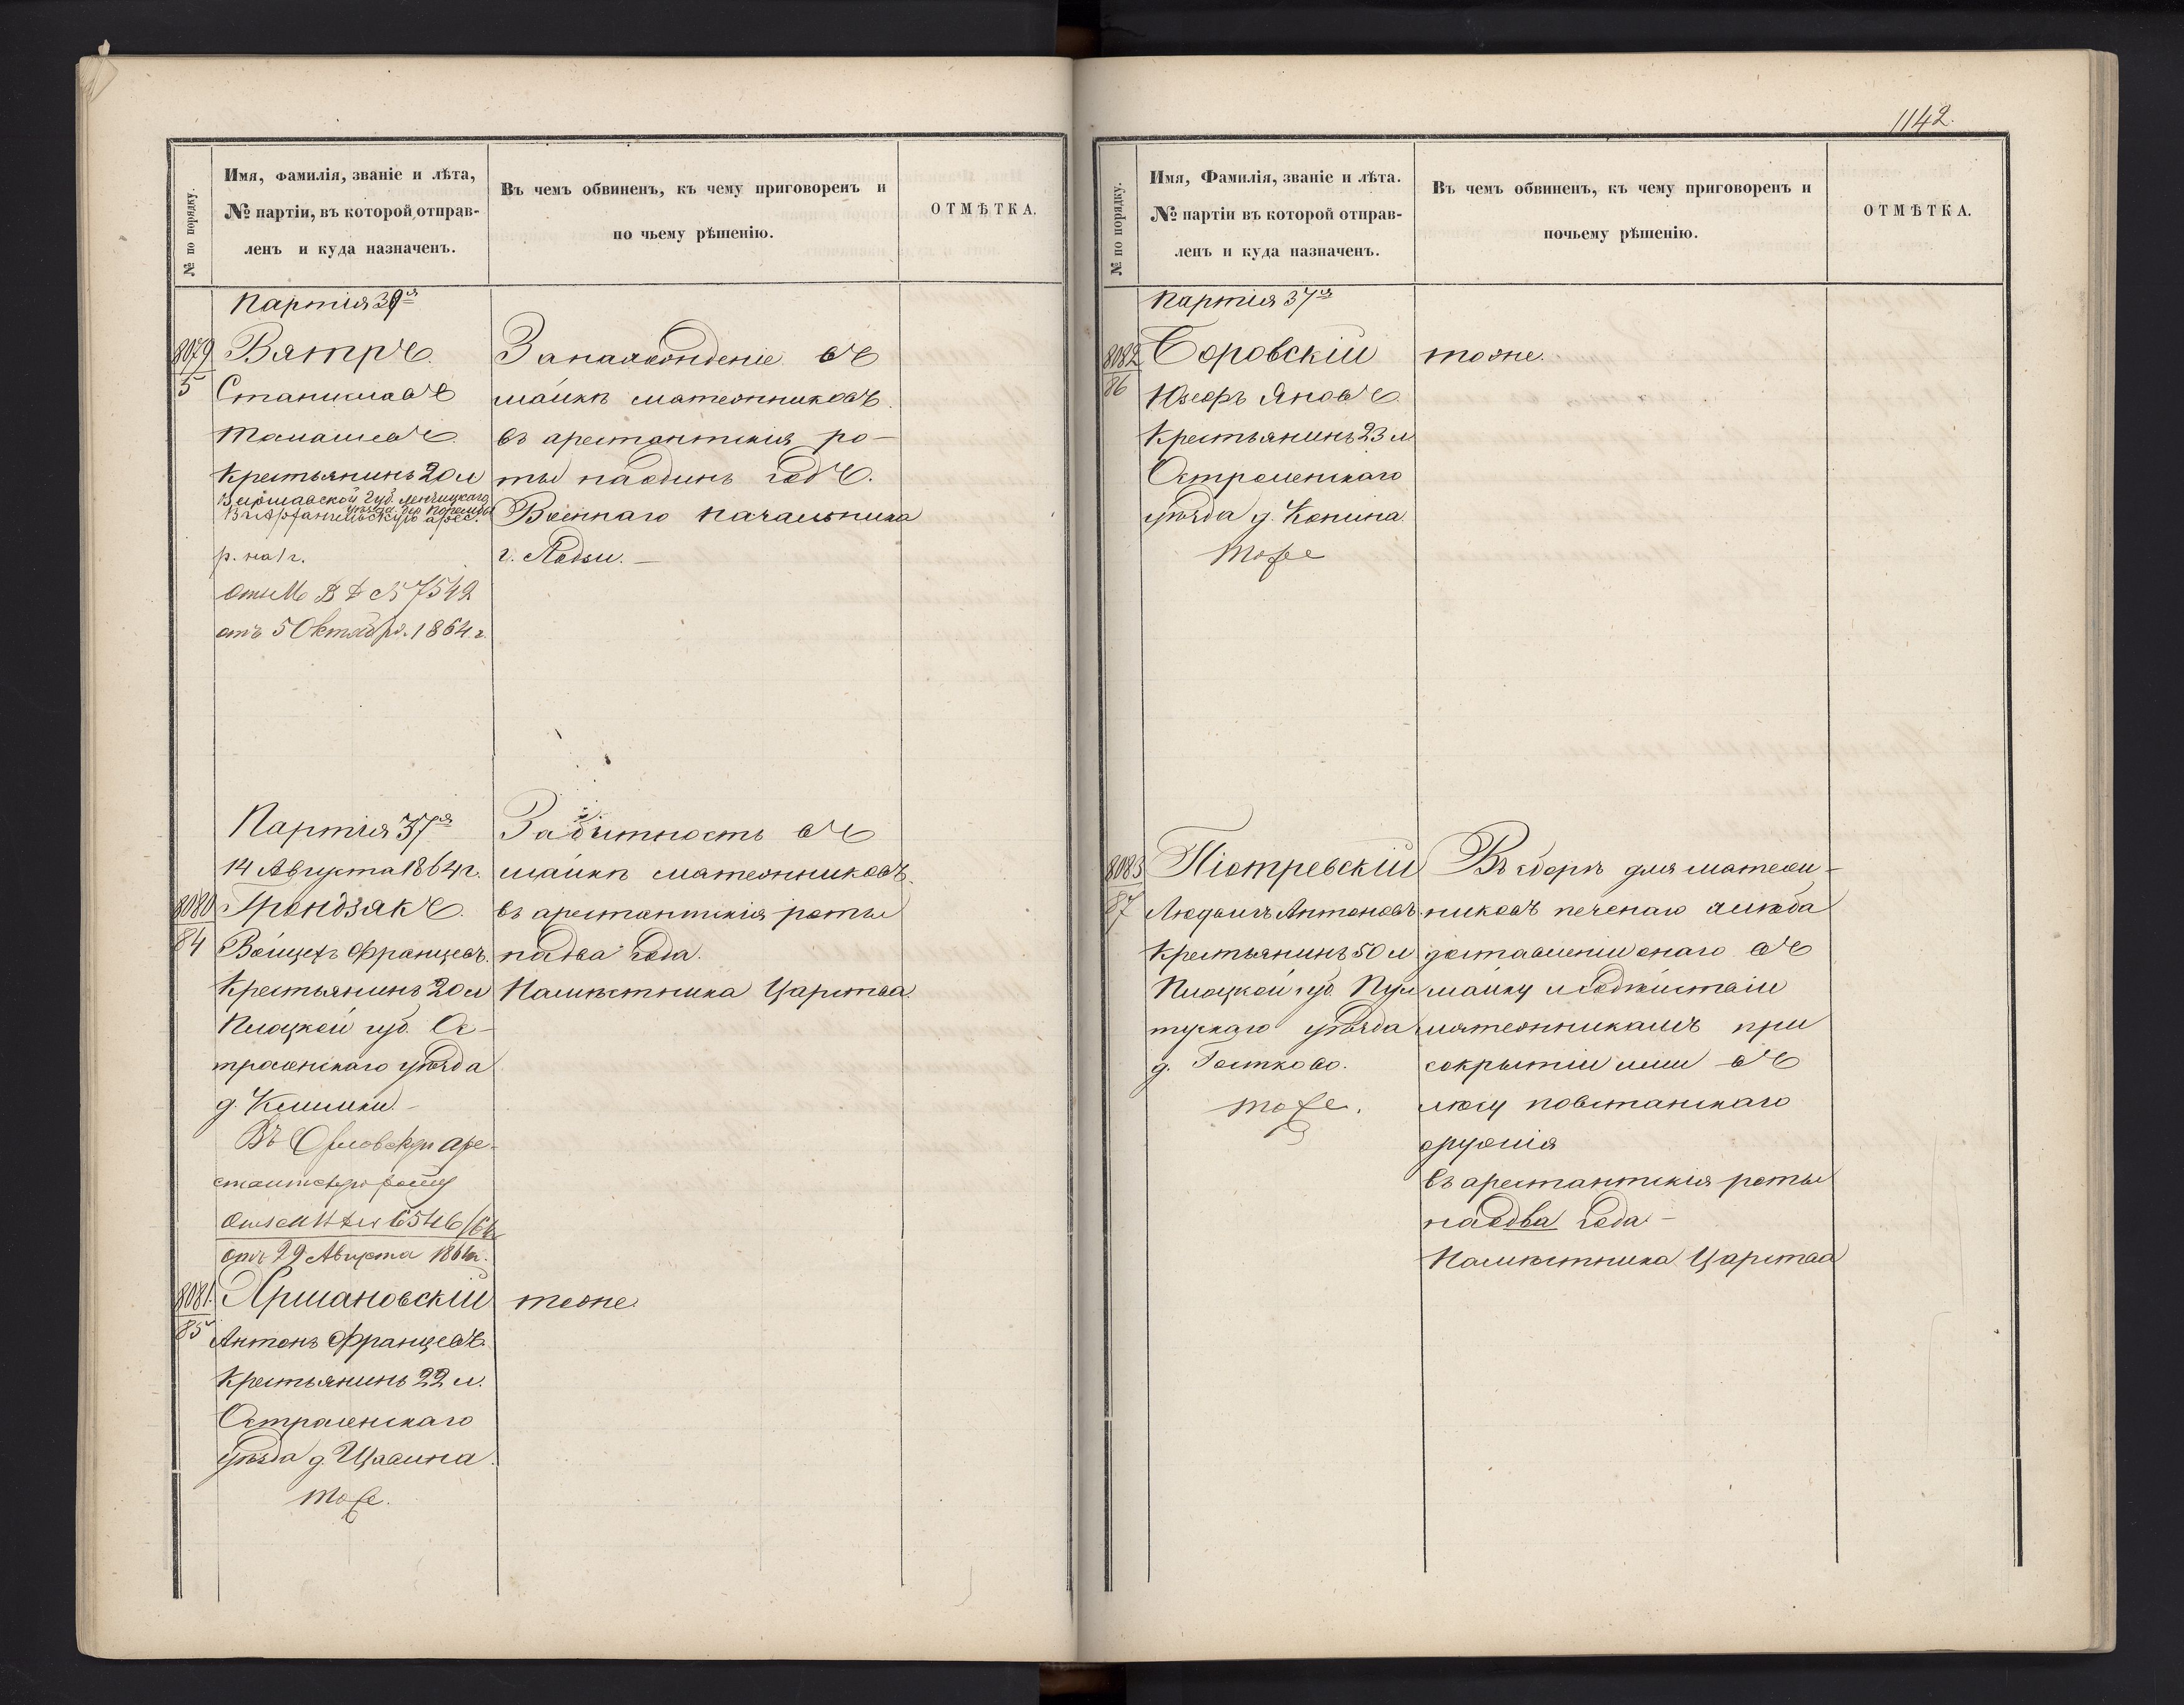 1142.
№ по порядку.
Имя, фамилія, званіе и лѣта,
№ партіи, въ которой отправ-
ленъ и куда назначенъ.
Въ чемъ обвиненъ, къ чему приговоренъ и
по чьему рѣшенію.
ОТМѢТКА.
Партія 39я
8079
5
Вятръ
Станиславъ
Крестьянинъ 20 л
Варшавской губ. Ленчицкаго
уѣзда. дер
Въ Архангельскую арес.
р. на 1 г.
№ 7542
отъ 5 Октября 1864 г.
За нахожденіе въ
шайкѣ мятежниковъ
въ арестантскія ро-
ты на одинъ годъ.
Военнаго начальника
г. Лодзи. —
Партія 37я
14 Августа 1864 г.
8080
84
Грондзякъ
Войцехъ Францевъ.
Крестьянинъ 20 л
Плоцкой губ. Ос-
троленскаго уѣзда
д.
Въ Орловскую аре-
стантскую роту
6546/64
отъ 29 Августа 1864 г.
За бытность въ
шайкѣ мятежниковъ
въ арестантскія роты
на два года.
Намѣстника Царства
8081.
85
Яршановскій
тоже
Антонъ Францевъ
Крестьянинъ 22 л.
Остроленскаго
уѣзда д.
тоже.
№ по порядку.
Имя, Фамилія, званіе и лѣта.
№ партіи въ которой отправ-
ленъ и куда назначенъ.
Въ чемъ обвиненъ, къ чему приговоренъ и
почьему рѣшенію.
ОТМѢТКА.
Партія 37я
8082
86
Боровскій
тоже.
Юзефъ Яновъ
Крестьянинъ 23 л
Остроленскаго
уѣзда д. Конина.
тоже
8083
87
Піотревскій
Людвигъ Антоновъ
Крестьянинъ 50 л
Плоцкой губ. Пул
тускаго уѣзда
д. Гостково.
тоже.
Въ сборѣ для мятеж-
никовъ печенаго хлѣба
доставленіи онаго въ
шайку и содѣйствіи
мятежникамъ при
сокрытіи ими въ
лѣсу повстанскаго
оружія
въ арестантскія роты
на два года —
Намѣстника Царства